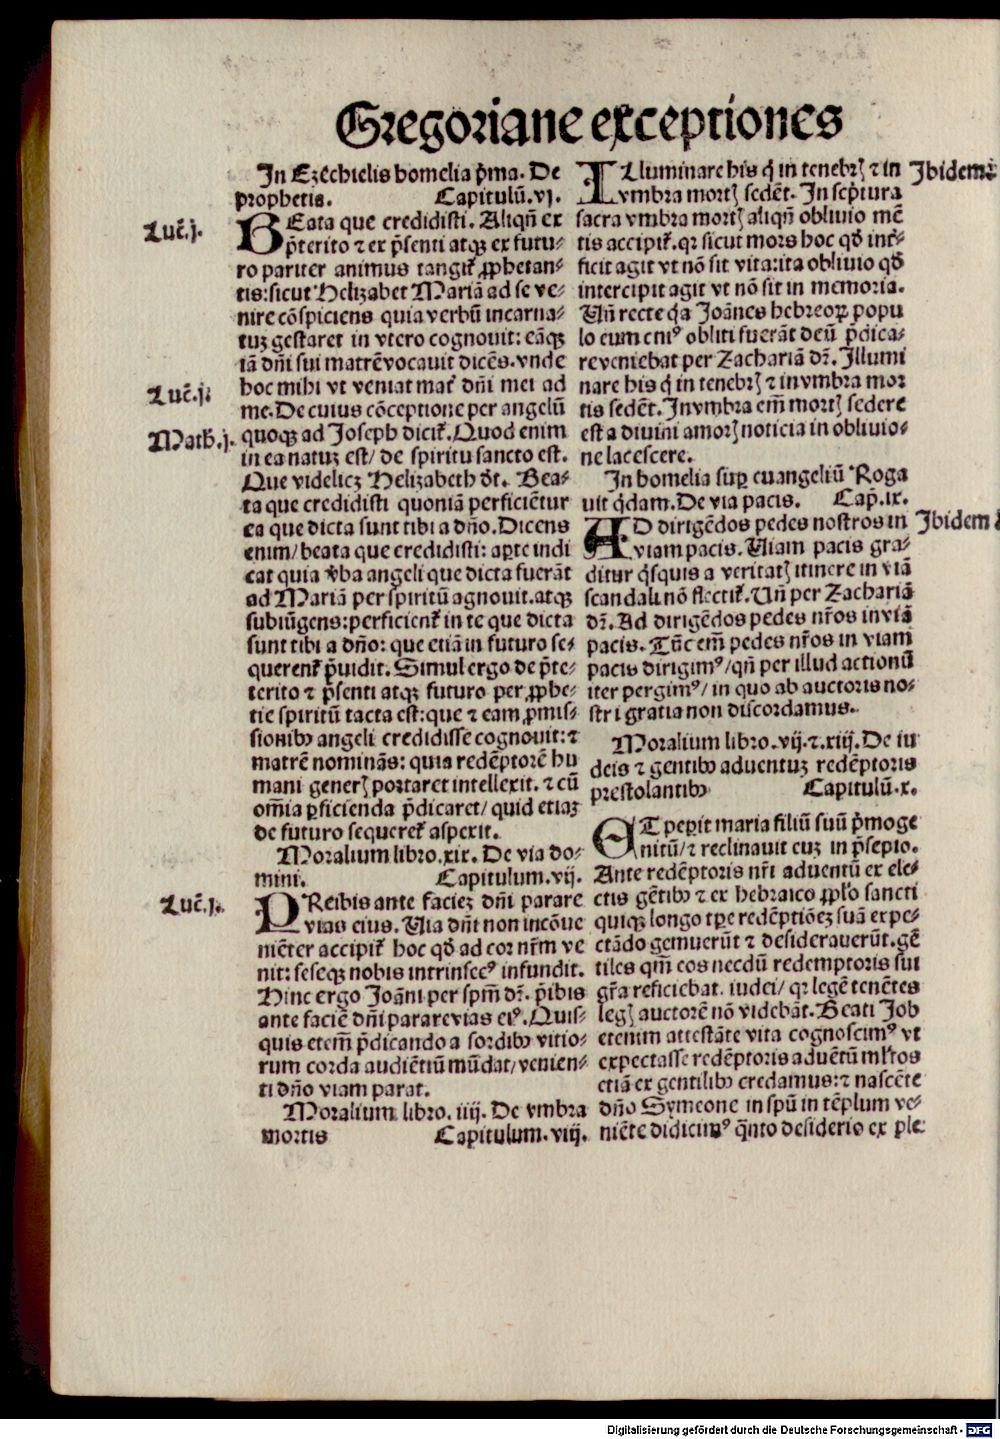 Gregoriane exceptiones
In Ezēchielis homelia p̄ma. De
prophetis. Capitulū.vj.
Luč.j.
BEata que credidisti. Aliqn̄ ex
p̄terito ⁊ ex p̄senti atqꝫ ex futu⸗
ro pariter animus tangit᷑ ꝓphetan⸗
tis:sicut Helizabet Mariā ad se ve⸗
nire cōspiciens quia verbū incarna⸗
tuꝫ gestaret in vtero cognouit: eāqꝫ
iā dn̄i sui matrē vocauit dicēs. vnde
Luč.j.
hoc mihi vt veniat mat̉ dn̄i mei ad
me. De cuius cōceptione per angelū
Math.j.
quoqꝫ ad Joseph dicit᷑. Quod enim
in ea natuꝫ est/ de spiritu sancto est.
Que videlicꝫ Helizabeth d̄t. Bea⸗
ta que credidisti quoniā perficiētur
ea que dicta sunt tibi a dn̄o. Dicens
enim/ beata que credidisti: aꝑte indi
cat quia v̄ba angeli que dicta fuerāt
ad Mariā per spiritū agnouit. atqꝫ
subiūgens: perficient᷑ in te que dicta
sunt tibi a dn̄o: que etiā in futuro se⸗
querent᷑ p̄uidit. Simul ergo de p̄te⸗
terito ⁊ p̄senti atqꝫ futuro per ꝓphe⸗
tie spiritū tacta est: que ⁊ eam ꝓmis⸗
sionibꝰ angeli credidisse cognouit: ⁊
matrē nominās: quia redēptorē hu
mani generꝭ portaret intellexit. ⁊ cū
om̄ia ꝑficienda p̄dicaret/ quid etiaꝫ
de futuro sequeret᷑ aspexit.
Moralium libro.xix. De via do⸗
mini. Capitulum.vij.
Luč.j.
PReibis ante facieꝫ dn̄i parare
vias eius. Via dn̄i non incōue
niēter accipit᷑ hoc qd̄ ad cor nr̄m ve
nit: seseqꝫ nobis intrinsecꝰ infundit.
Hinc ergo Joāni per spm̄ dr̄. p̄ibis
ante faciē dn̄i parare vias eiꝰ. Quis⸗
quis etem̄ p̄dicando a sordibꝰ vitio⸗
rum corda audiētiū mūdat/ venien⸗
ti dn̄o viam parat.
Moralium libro. iiij. De vmbra
mortis Capitulum.viij.
ILluminare his q̄ in tenebrꝭ ⁊ in
Ibidem
vmbra mortꝭ sedēt. In sc̄ptura
sacra vmbra mortꝭ aliqn̄ obliuio mē
tis accipit᷑. qꝛ sicut mors hoc qd̄ int̉⸗
ficit agit vt nō sit vita: ita obliuio qd̄
intercipit agit vt nō sit in memoria.
Vn̄ recte q̄a Joānes hebreoꝝ popu
lo eum eniꝰ obliti fuerāt deū p̄dica⸗
re veniebat per Zachariā dr̄. Illumi
nare his q̄ in tenebrꝭ ⁊ in vmbra mor
tis sedēt. In vmbra em̄ mortꝭ sedere
est a diuini amorꝭ noticia in obliuio⸗
ne lacescere.
In homelia suꝑ euangeliū Roga
uit q̄dam. De via pacis. Cap̄.ix.
AD dirigēdos pedes nostros in
Ibidem
viam pacis. Viam pacis gra⸗
ditur q̄squis a veritatꝭ itinere in viā
scandali nō flectit᷑. Vn̄ per Zachariā
dr̄. Ad dirigēdos pedes nr̄os in viā
pacis. Tūc em̄ pedes nr̄os in viam
pacis dirigimꝰ/ qn̄ per illud actionū
iter pergimꝰ/ in quo ab auctoris no⸗
stri gratia non discordamus.
Moralium libro.vij.⁊.xiij. De iu
deis ⁊ gentibꝰ aduentuꝫ redēptoris
prestolantibꝰ Capitulū.x.
ET peꝑit maria filiū suū p̄moge
nitū/ ⁊ reclinauit euꝫ in p̄sepio.
Ante redēptoris nr̄i aduentū ex ele⸗
ctis gētibꝰ ⁊ ex hebraico ꝓpl̓o sancti
quiqꝫ longo tꝑe redēptiōeꝫ suā expe⸗
ctādo gemuerūt ⁊ desiderauerūt. gē
tiles qm̄ eos necdū redemptoris sui
gr̄a reficiebat. iudei/ qꝛ legē tenētes
legꝭ auctorē nō videbāt. Beati Job
etenim attestāte vita cognoscimꝰ vt
expectasse redēptoris aduētū ml̓tos
etiā ex gentilibꝰ credamus: ⁊ nascēte
dn̄o Symeone in spū in tēplum ve⸗
niēte didicimꝰ q̄nto desiderio ex ple
Digitalisierung gefördert durch die Deutsche Forschungsgemeinschaft - DFG